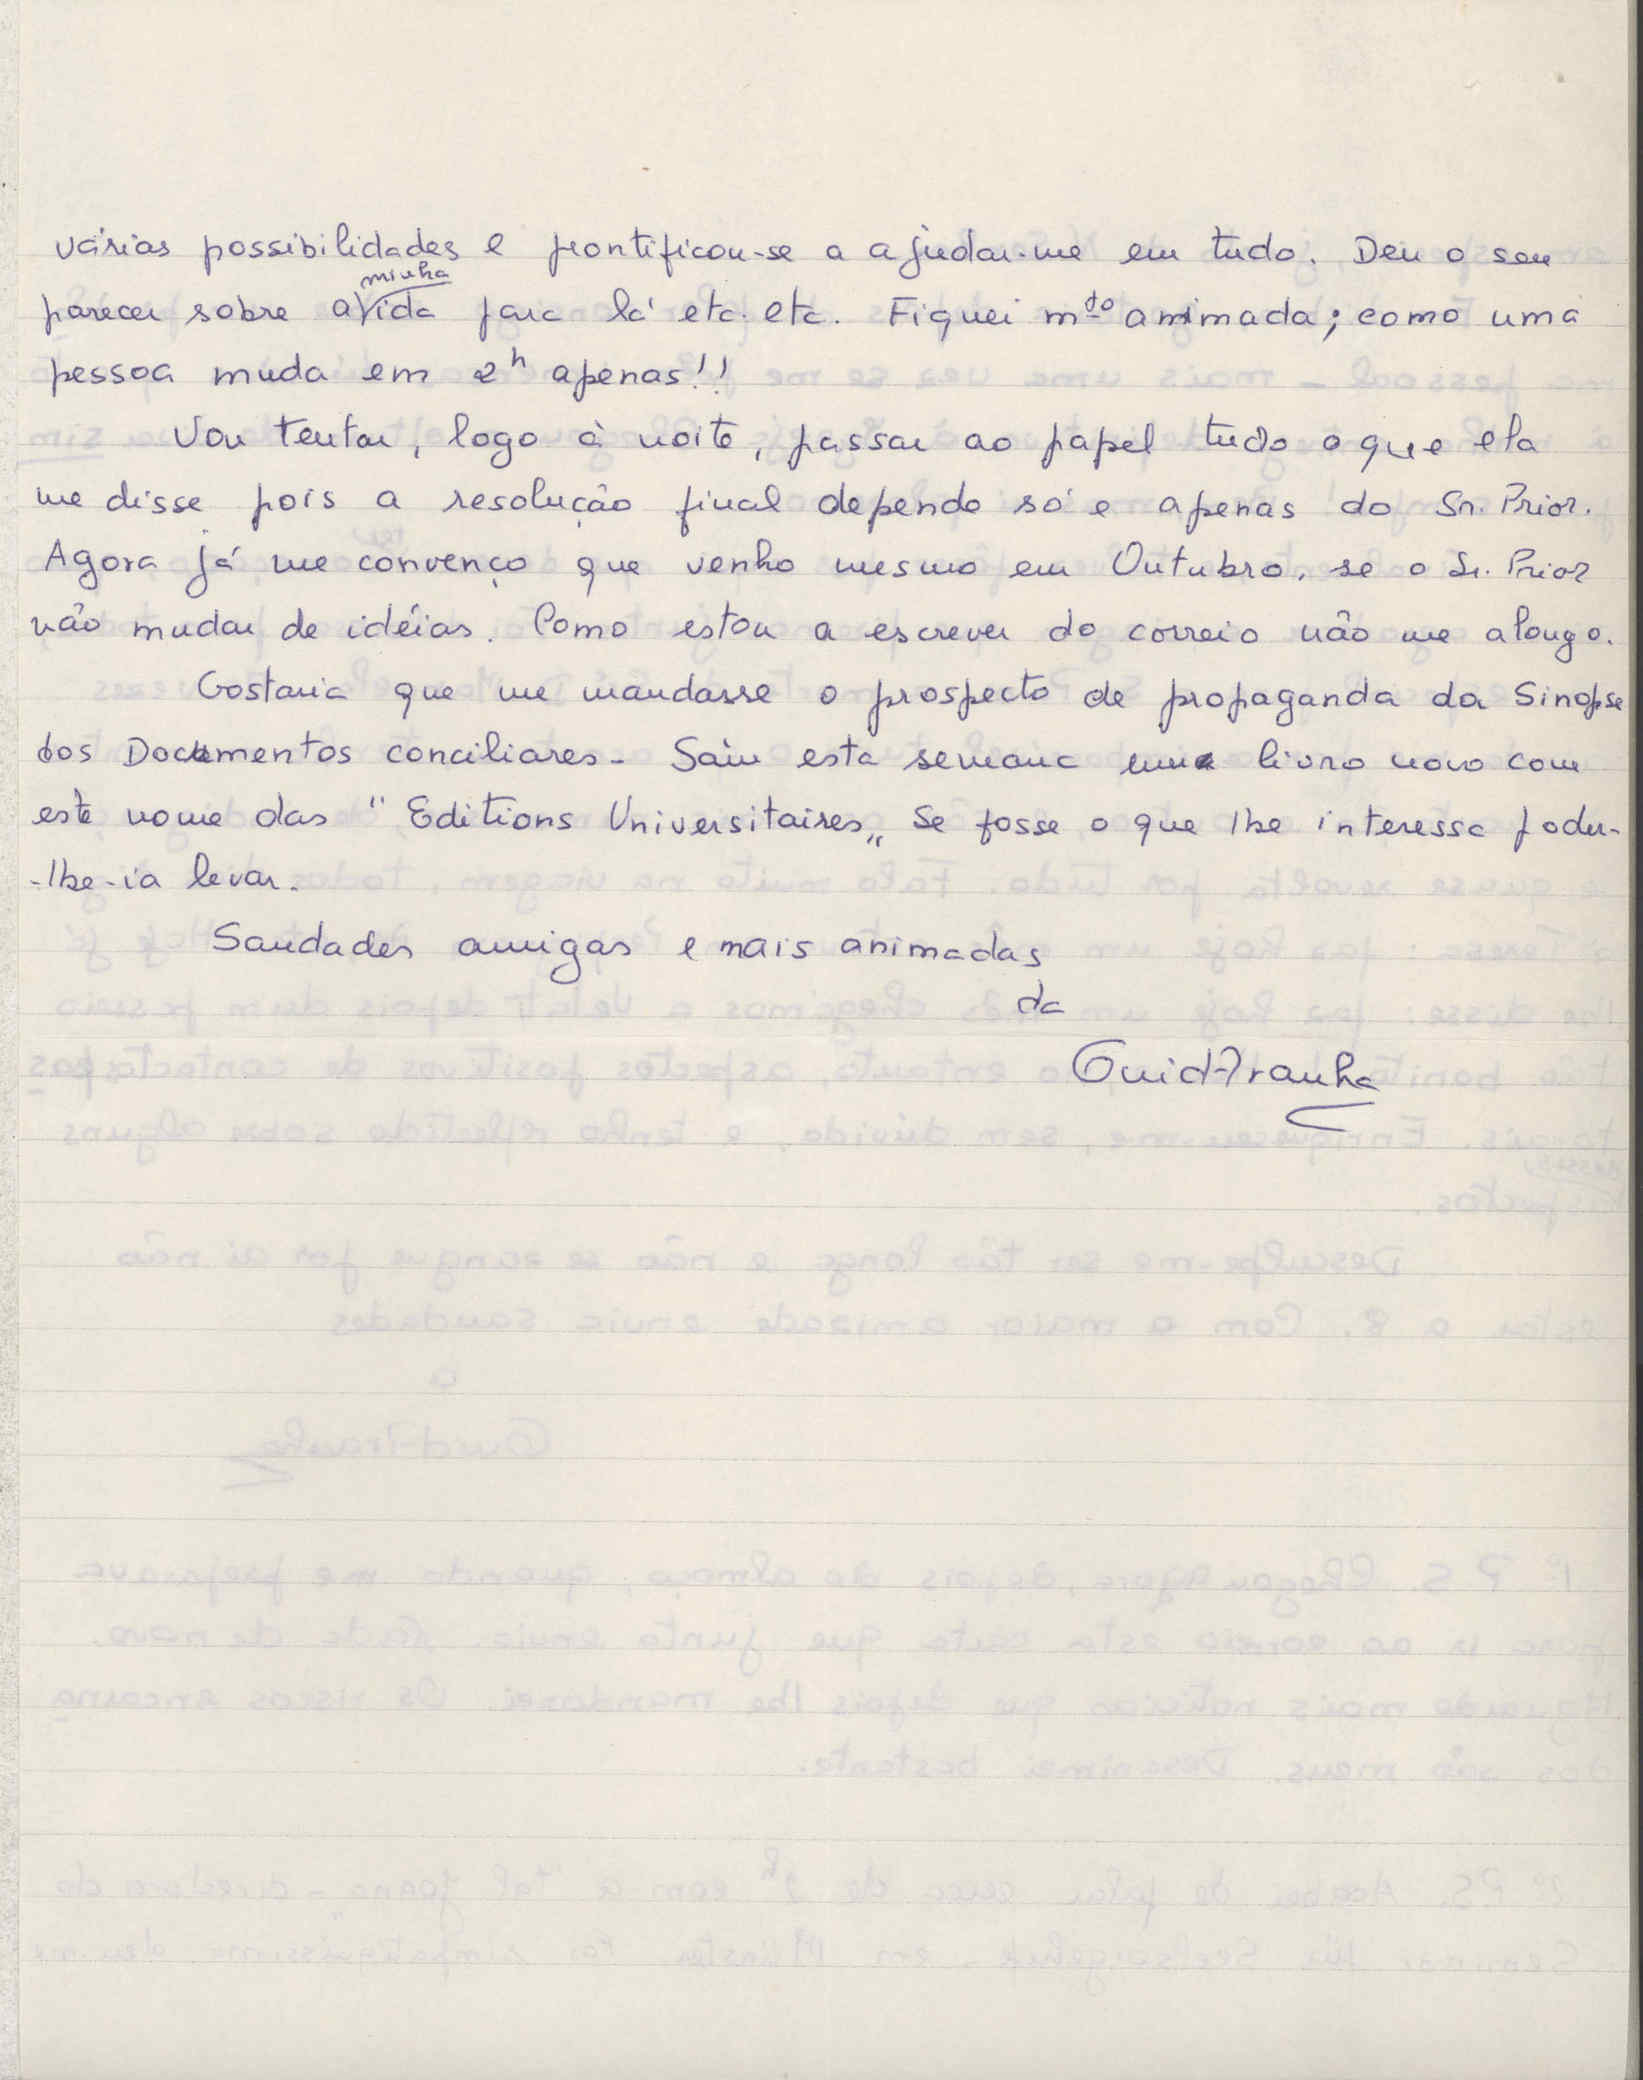 várias possibilidades e prontificou-se a ajudar-me em tudo. Deu o seu
parecer sobre a minha vida para lá etc. etc. Fiquei mto animada; como uma
pessoa muda em 2h apenas!!
Vou tentar, logo à noite, passar ao papel tudo o que ela
me disse pois a resolução final depende só e apenas do Sr. Prior.
Agora já me convenço que venho mesmo em Outubro, se o Sr. Prior
não mudar de idéias. Como estou a escrever do correio não me alongo.
Gostaria que me mandasse o prospecto de propaganda da Sinopse
dos Documentos conciliares - Saiu esta semana um livro novo com
este nome das "Editions Universitaires„ Se fosse o que lhe interessa poder-
-lhe-ia levar.
Saudades amigas e mais animadas
da
GuidAranha